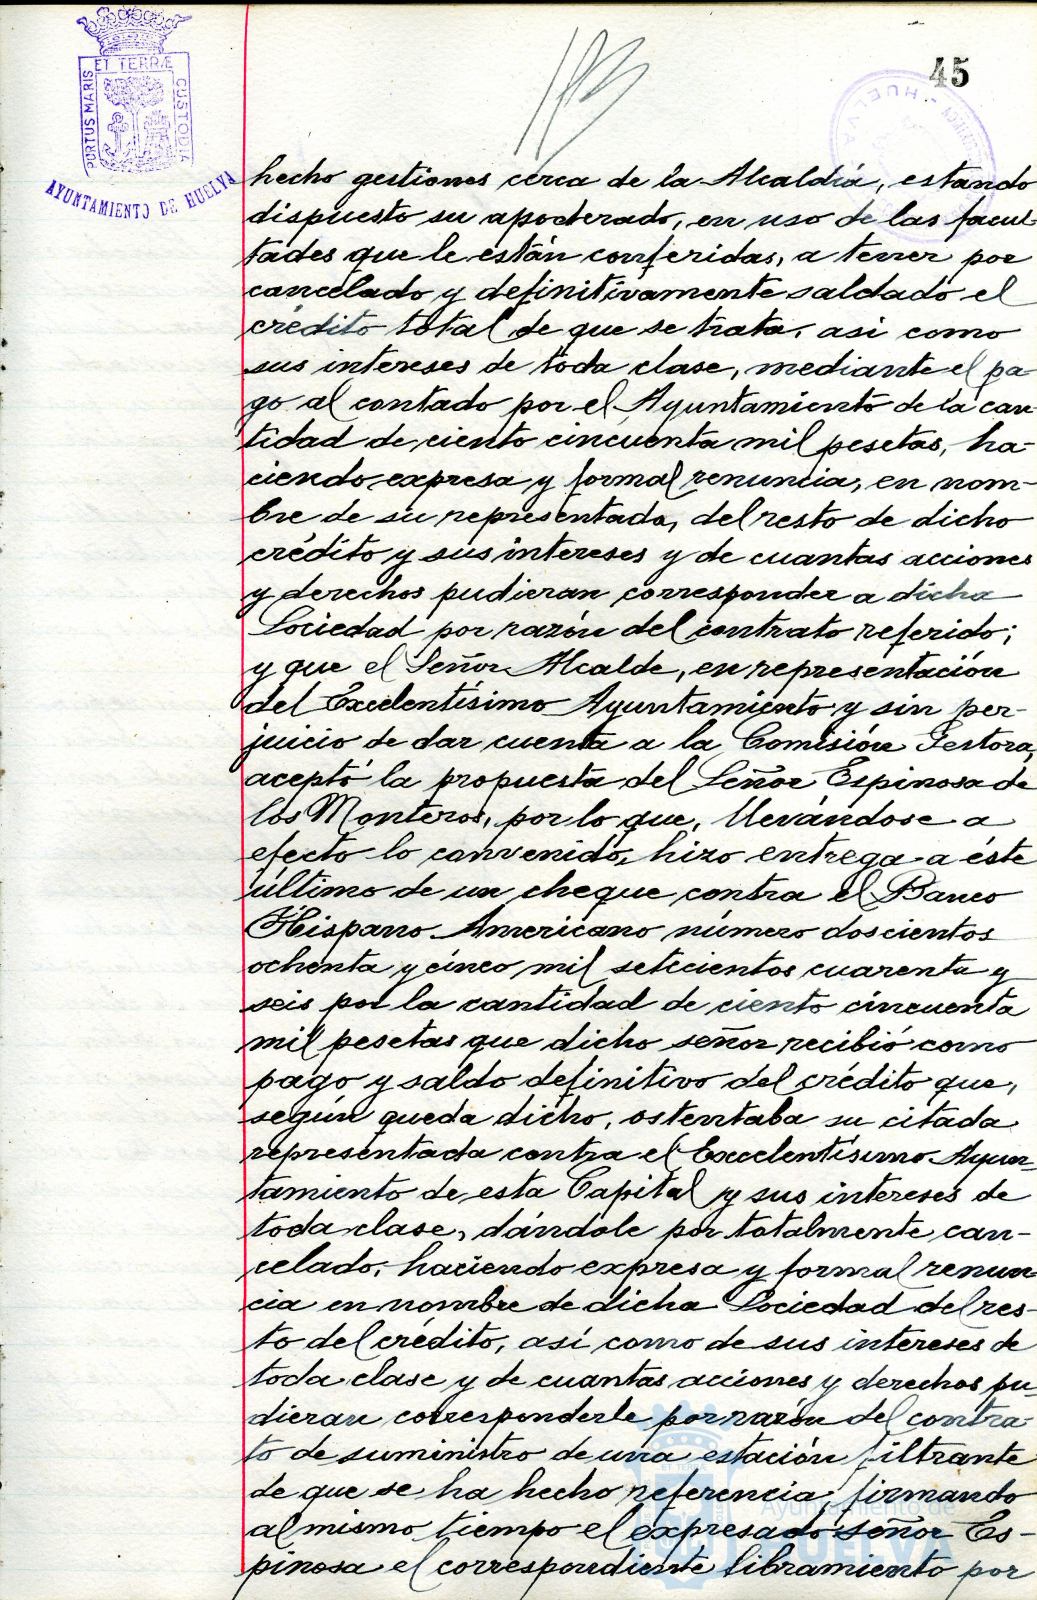 45
PORTUS MARIS ET TERRÆ CUSTODIA
AYUNTAMIENTO DE HUELVA
hecho gestiones cerca de la Alcaldía, estando
dispuesto su apoderado, en uso de las facul-
tades que le están conferidas, a tener por
cancelado y definitivamente saldado el
crédito total de que se trata, asi como
sus intereses de toda clase, mediante el pa-
go al contado por el Ayuntamiento de la can-
tidad de ciento cincuenta mil pesetas, ha-
ciendo expresa y formal renuncia, en nom-
bre de su representada, del resto de dicho
crédito y sus intereses y de cuantas acciones
y derechos pudieran corresponder a dicha
Sociedad por razón del contrato referido;
y que el Señor Alcalde, en representación
del Excelentísimo Ayuntamiento y sin per-
juicio de dar cuenta a la Comisión Gestora,
aceptó la propuesta del Señor Espinosa de
los Monteros, por lo que, llevándose a
efecto lo convenido, hizo entrega a éste
último de un cheque contra el Banco
Hispano Americano número doscientos
ochenta y cinco mil setecientos cuarenta y
seis por la cantidad de ciento cincuenta
mil pesetas que dicho señor recibió como
pago y saldo definitivo del crédito que,
según queda dicho, ostentaba su citada
representada contra el Excelentísimo Ayun-
tamiento de esta Capital y sus intereses de
toda clase, dándole por totalmente can-
celado, haciendo expresa y formal renun
cia en nombre de dicha Sociedad del res-
to del crédito, así como de sus intereses de
toda clase y de cuantas acciones y derechos pu
dieran corresponderle por razón del contra-
to de suministro de una estación filtrante
de que se ha hecho referencia; firmando
al mismo tiempo el expresado señor Es-
pinosa el correspondiente libramiento por
Ayuntamiento de
HUELVA